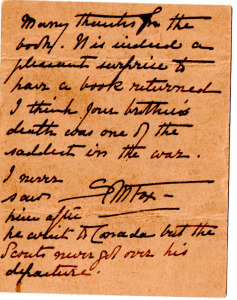 Many thanks for the
book. It is indeed a
pleasant surprise to
have a book returned
I think your brother's
death was one of the
saddest in the war.
I never
saw
him after
he went to Canada but the
Scouts never got over his
departure.